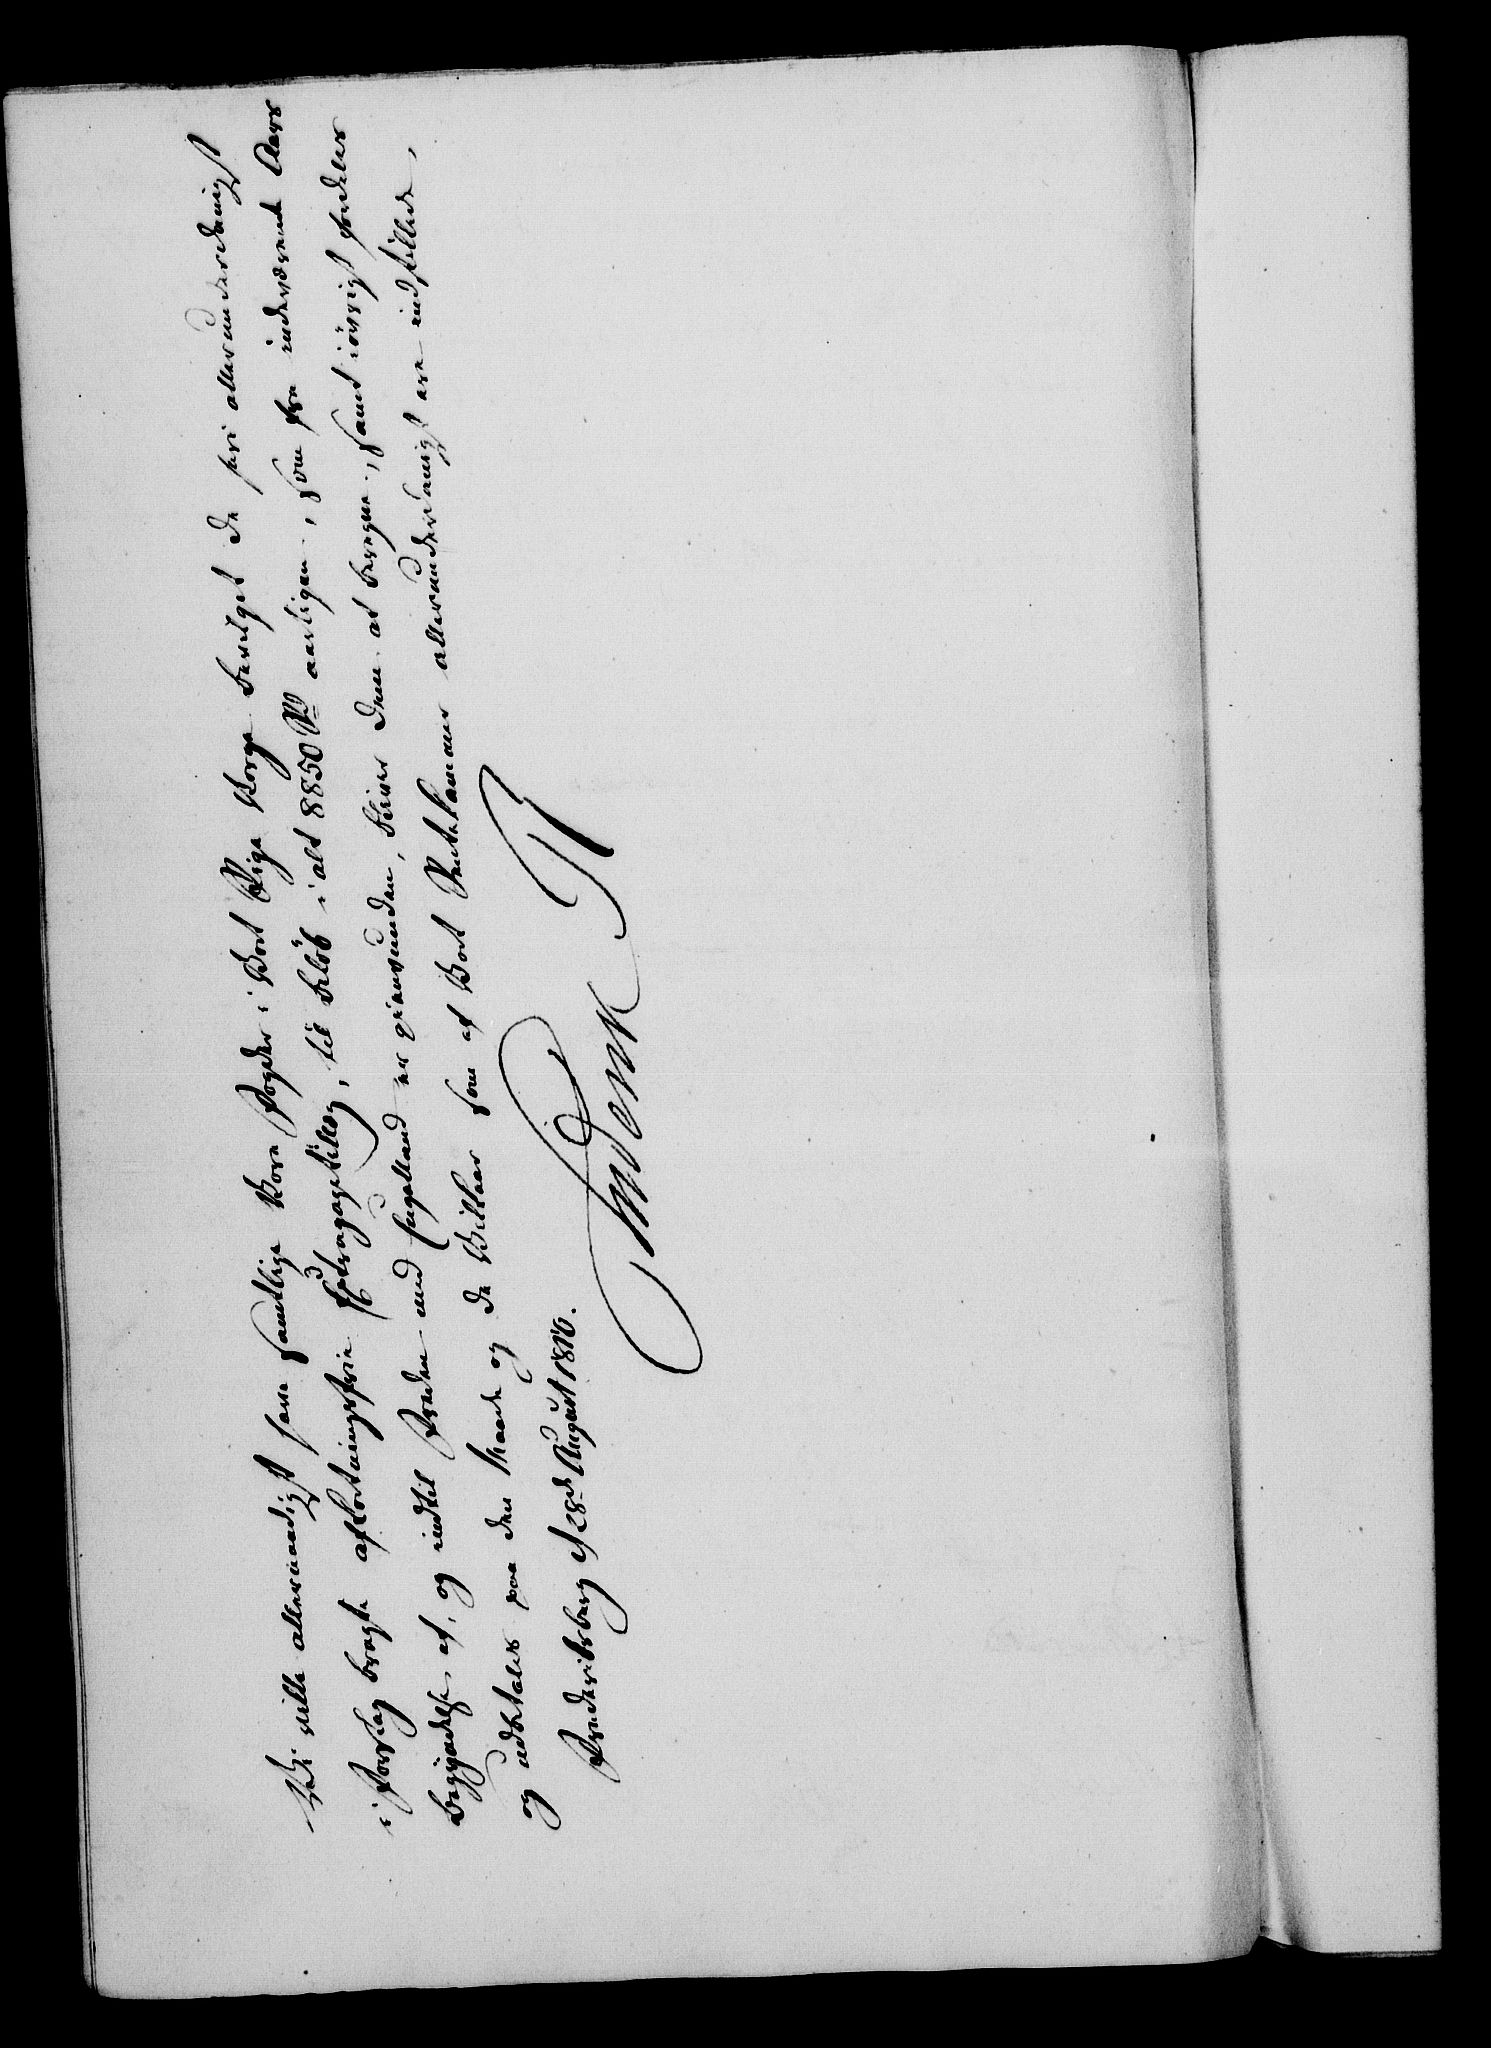 Vi ville allernaadigst have samtlige Vore Fogder i Vort Rige Norge bevilget de heri allerunderdanigst
i Forslag bragte afkortningsfrie Godtgagetillæg, til Beløb i alt 8850 Rd aarligen, som fra indeværende Aars
Begyndelse af, og indtil Freden med Engelland er gienvunden, bliver dem at beregne, samt iøvrigt fordeles
og udbetales paa den Maade og de Vilkaar som af Vort Rentekammer allerunderdanigst ere indstillede.
Frederiksberg d 28de August 1810.
Frederik R